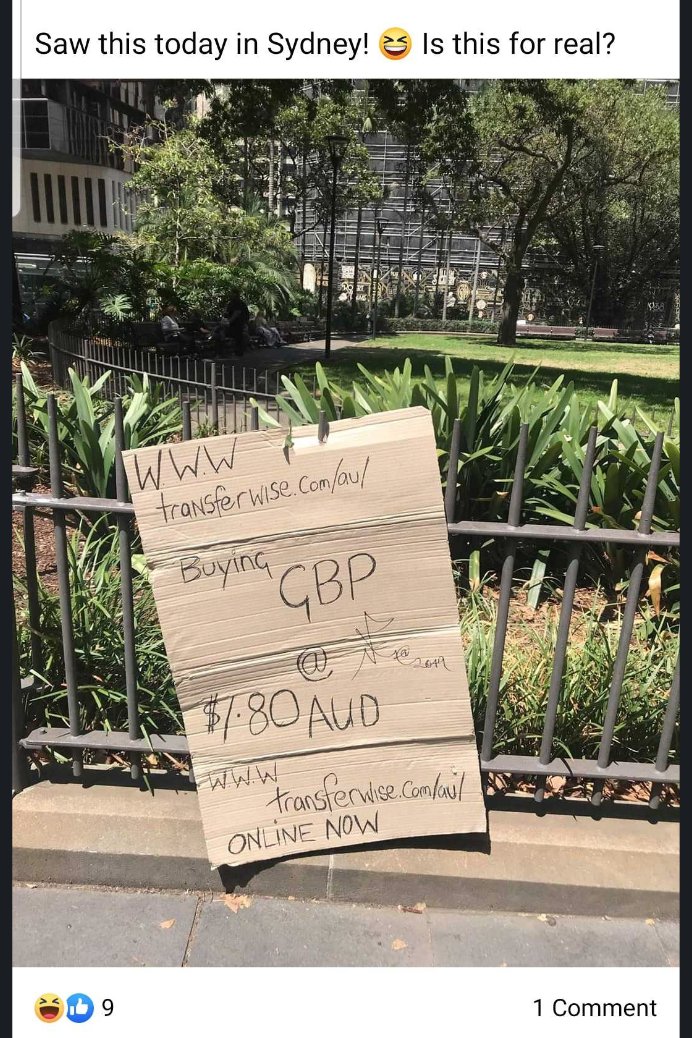 Saw this today in Sydney! 😆 Is this for real?
W.W.W
transferwise.com/au/
Buying GBP
@
2019
$1.80 AUD
W.W.W
transferwise.com/au/
ONLINE NOW
9
1 Comment